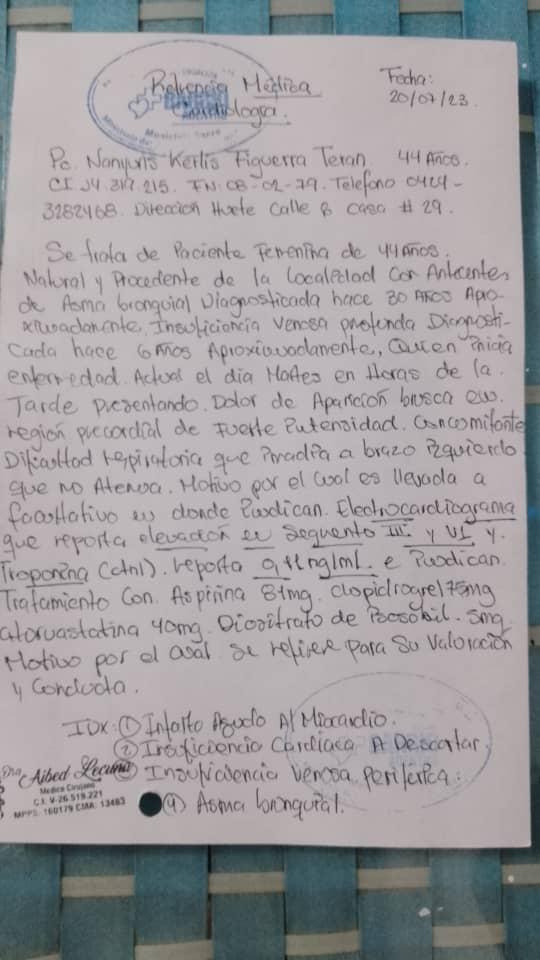 Referencia Médica
Cardiología.
Fecha:
20/07/23.
Pc. Nanyuris Kerlis Figuerra Teran 44 Años.
CI 14.317.215. FN: 08-02-79. Telefono 0424-
3282468. Dirección Huete Calle B Casa # 29.
Se trata de Paciente Femenina de 44 Años.
Natural y Procedente de la Localidad Con Antecentes
de Asma bronquial Diagnosticada hace 30 Años Apro-
ximadamente, Insuficiencia Venosa profunda Diagnosti-
cada hace 6 Años Aproximadamente, Quien Inicia
enfermedad. Actual el dia Martes en Horas de la.
Tarde Presentando. Dolor de Aparición brusca en.
región precordial de Fuerte Intensidad. Concomitante
Dificultad respiratoria que irradia a brazo Izquierdo
que no Atenua. Motivo por el cual es llevada a
facultativo en donde Indican. Electrocardiograma
que reporta elevación en Segmento III y V1 y.
Troponina (ctnl). reporta ng/mL e Indican.
Tratamiento Con. Aspirina 81mg. clopidrogrel 75mg
atorvastatina 40mg. Dinitrato de 5mg.
Motivo por el cual se refiere para Su Valoración
y Conducta.
IDX: ① Infarto Agudo Al Miocardio.
② Insuficiencia Cardiaca A Descartar.
③ Insuficiencia Venosa periférica.
④ Asma bronquial.
Dra. Aibed Lecuna
Medico Cirujano
C.I. V-26.519.221
MPPS: 160179 CMA: 13463